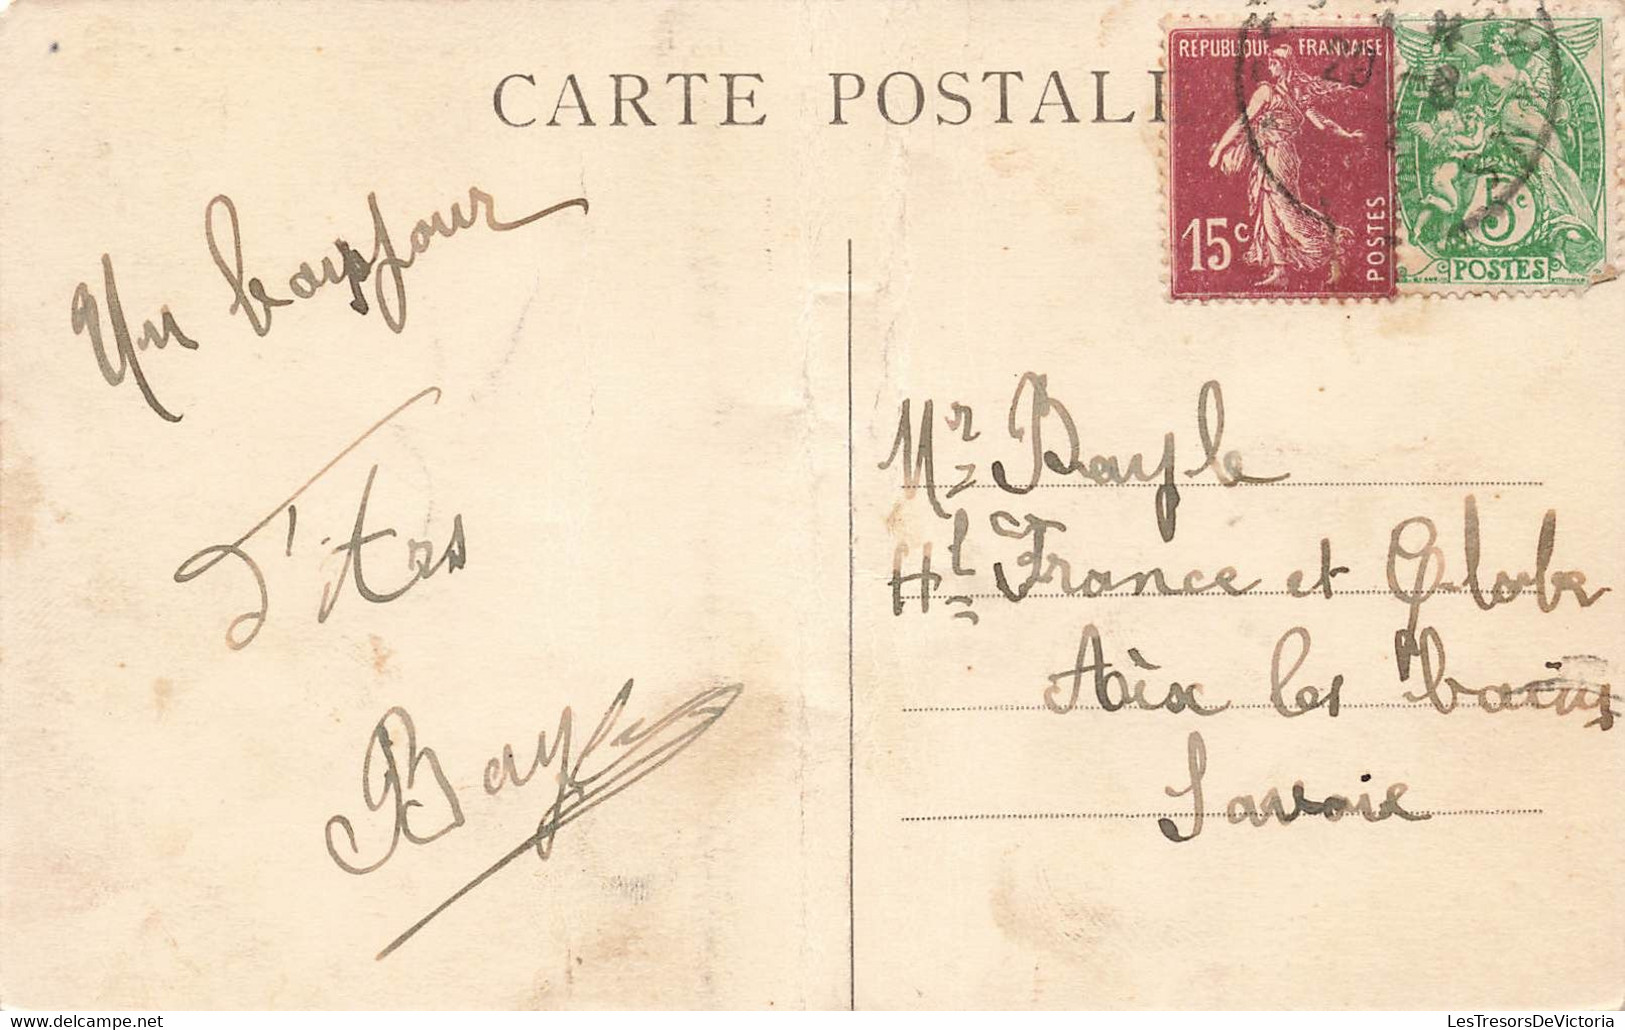 CARTE POSTAL
REPUBLIQUE FRANÇAISE
15c
POSTES
5c
POSTES
Un bonjour
d'Ars
Bayle
Mr Bayle
Hl France et Globe
Aix les bains
Savoie
LesTresorsDeVictoria
www.delcampe.net